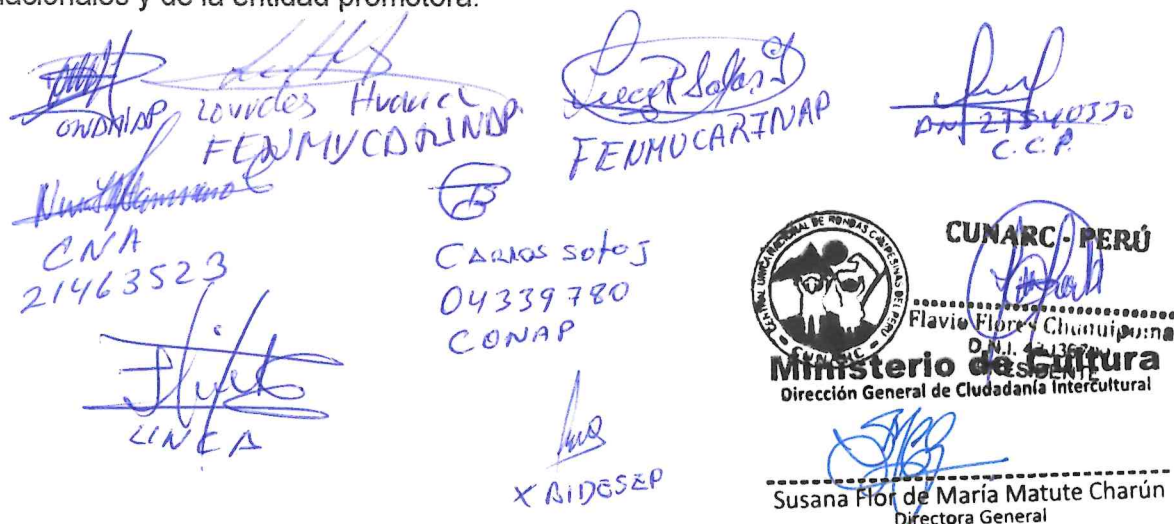 nacionales y de la entidad promotora.
ONAMIAP
Lourdes Huanca
FENMUCARINAP
FENMUCARINAP
C.C.P.
CNA
21463523
CARLOS Soto J
04339780
CONAP
UNCA
X AIDESEP
CENTRAL UNICA NACIONAL DE RONDAS CAMPESINAS DEL PERU
CUNARC
CUNARC - PERÚ
Flavio Flores
D.N.I.
PRESIDENTE
Ministerio de Cultura
Dirección General de Ciudadanía Intercultural
Susana Flor de María Matute Charún
Directora General